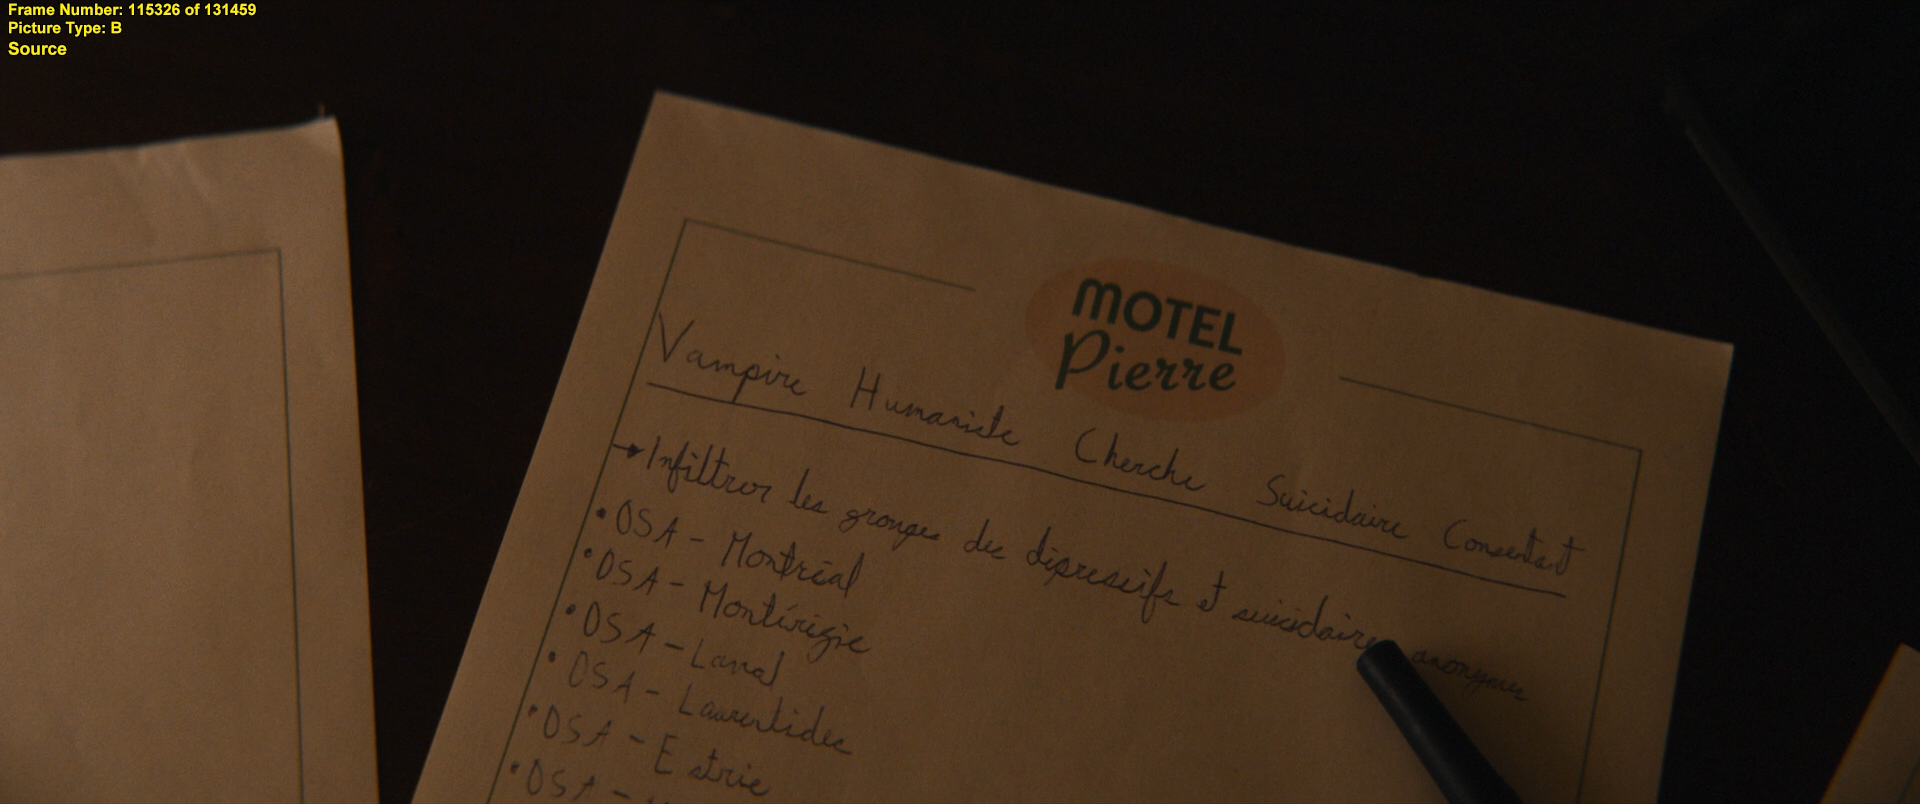 Frame Number: 115326 of 131459
Picture Type: B
Source
MOTEL
Pierre
Vampire Humaniste Cherche Suicidaire Consentant
→ Infiltrer les groupes de dépressifs et suicidaires anonymes
• DSA - Montréal
• DSA - Montérégie
• DSA - Laval
• DSA - Laurentides
• DSA - Estrie
• DSA -